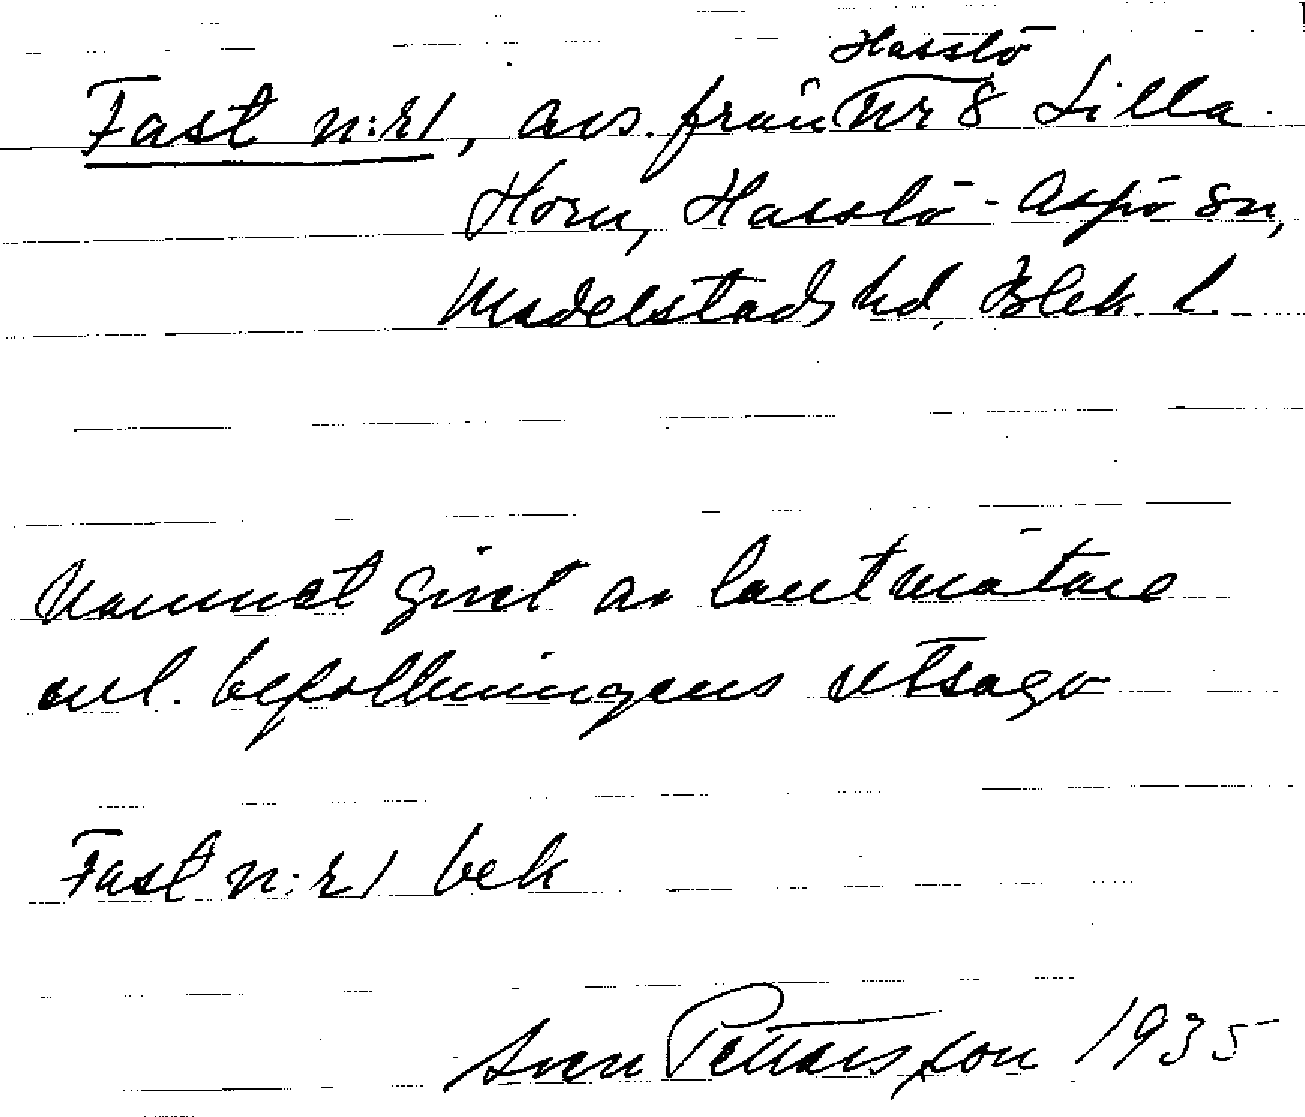 Hasslö
Fast n:r 1, avs. från nr 8 Lilla
Horn, Hasslö-Aspö sn,
Medelstads hd, Blek. l.
Namnet givet av lantmätare
enl. befolkningens utsago
Fast n:r 1 bek
Sven Pettersson 1935